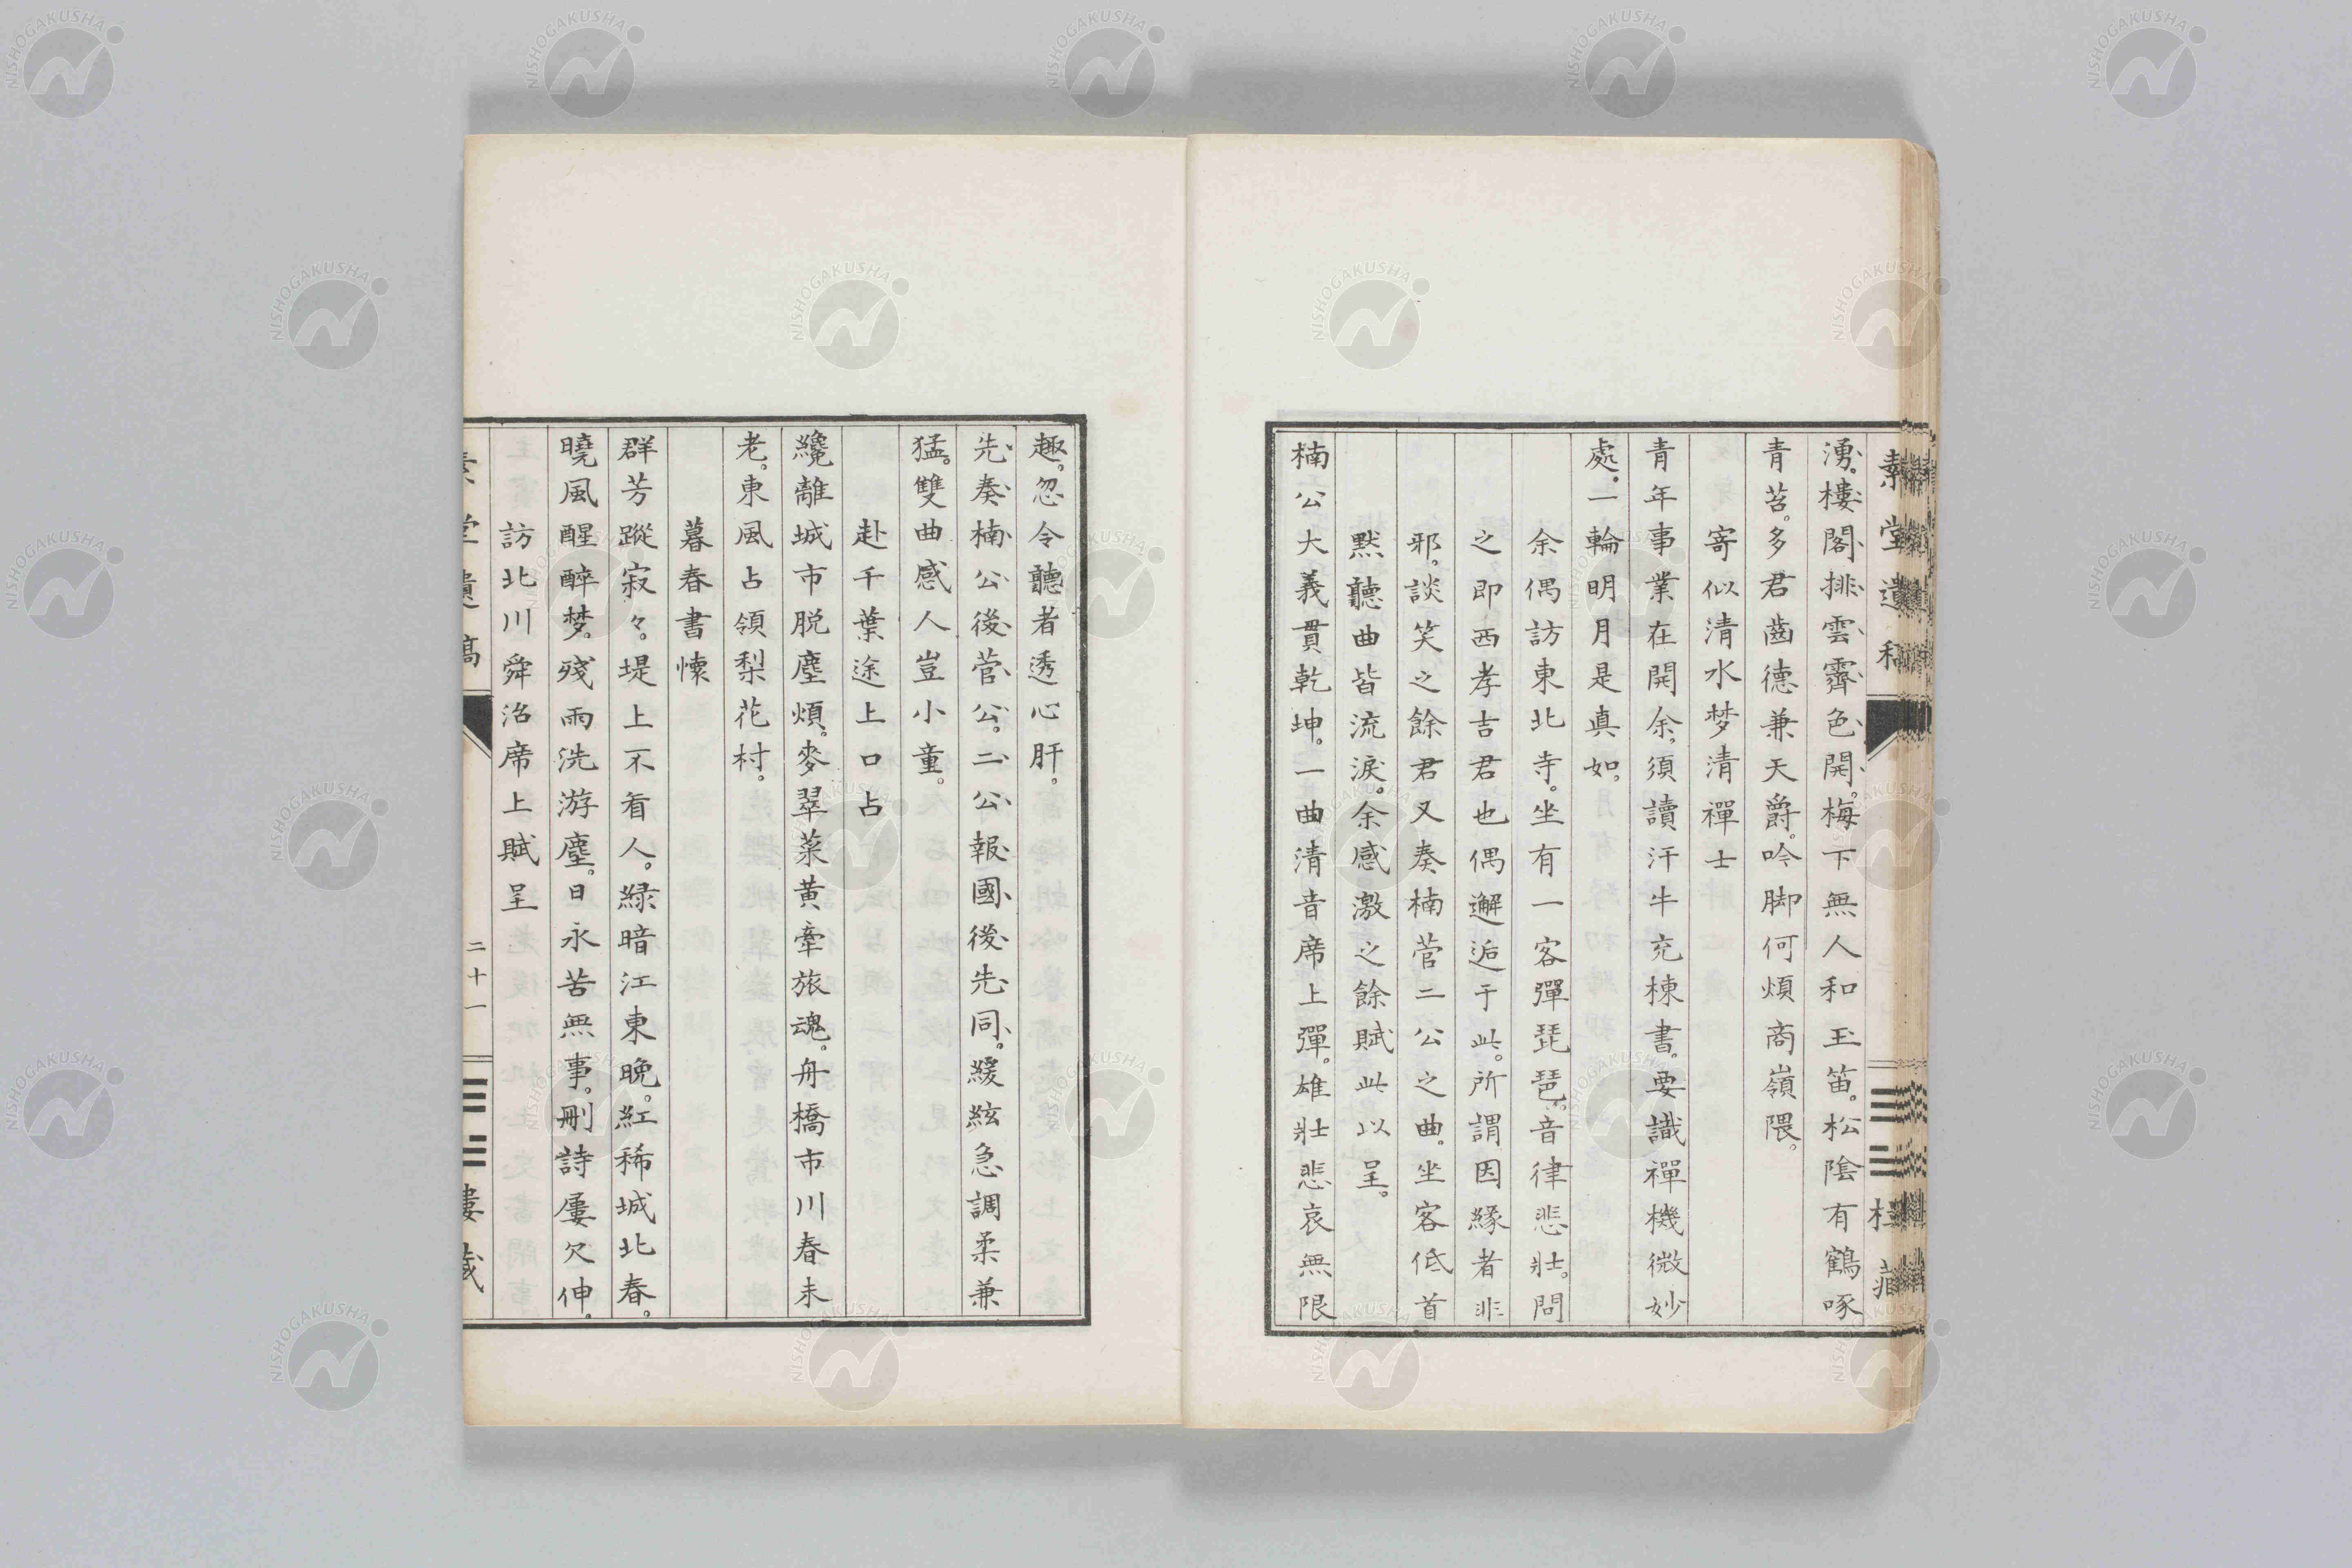 湧。樓閣排雲霽色開。梅下無人和玉笛。松陰有鶴啄
青苔。多君齒德兼天爵。吟脚何煩商嶺隈。
寄似清水梦清禪士
青年事業在開余。須讀汗牛充棟書。要識禪機微妙
處。一輪明月是真如。
余偶訪東北寺。坐有一客彈琵琶。音律悲壯。問
之即西孝吉君也偶邂逅于此。所謂因緣者非
邪。談笑之餘君又奏楠菅二公之曲。坐客低首
默聽曲皆流淚。余感激之餘賦此以呈。
楠公大義貫乾坤。一曲清音席上彈。雄壯悲哀無限
趣。忽令聽者透心肝。
先奏楠公後菅公。二公報國後先同。緩絃急調柔兼
猛。雙曲感人豈小童。
赴千葉途上口占
纔離城市脱塵煩。麥翠菜黄牽旅魂。舟橋市川春未
老。東風占領梨花村。
暮春書懷
群芳蹤寂々。堤上不看人。緑暗江東晚。紅稀城北春。
曉風醒醉梦。殘雨洗游塵。日永苦無事。刪詩屢欠伸。
訪北川舜治席上賦呈
素堂遺稿
二十一
NISHOGAKUSHA